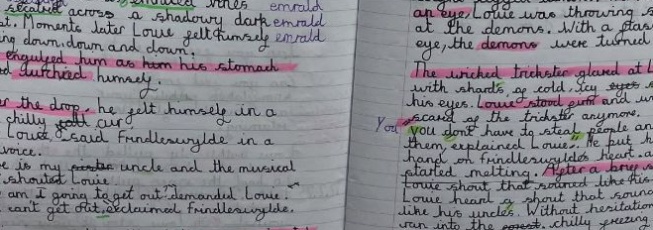 secated across a shadowy dark emrald
st. Moments later Louie felt humself emrald
ng down, down and down.
engulged him as hom his stomach
ed lurched humself.
er the drop, he felt humself in a
chilly air.
Louie" said Frindleswylde in a
voice.
e is my uncle and the musical
shouted Louie.
am I going to get out" demanded Louie.
can't get out, exclaimed Frindleswylde.
an eye, Louie was throwing s
at the demons. With a flas
eye, the demons were turned
The wicked trickster glared at L
with shards of cold, icy eyes
his eyes. Louie stood firm and un
scared of the trickster anymore.
You
you dont have to steal people an
them, explained Louie". He put h
hand on Frindleswyldes heart a
started melting. After a brief s
Louie shout that sounded like his
Louie heard a shout that soun
like his uncles. Without hesitation
ran into the forest, chilly freezing